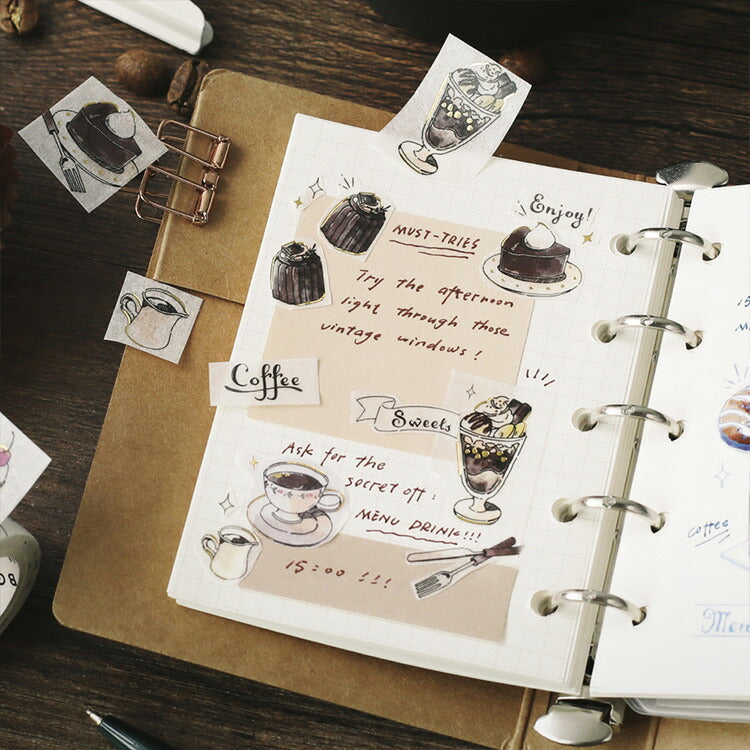 Enjoy!
MUST-TRIES
Try the afternoon
light through those
vintage windows!
Coffee
Sweets
Ask for the
secret off:
MENU DRINK!!!
15:00 !!!
15
coffee
Men